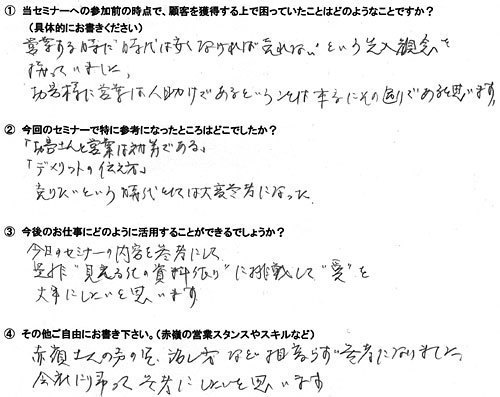 ① 当セミナーへの参加前の時点で、顧客を獲得する上で困っていたことはどのようなことですか？
（具体的にお書きください）
営業する時に"時代は安くなければ売れない"という先入観念を
持っていました。
お客様に営業は人助けであるということは本当にその通りであると思います。
② 今回のセミナーで特に参考になったところはどこでしたか？
「お客さんと営業は対等である」
「デメリットの伝え方」
売りたいという時代 とても大変参考になった
③ 今後のお仕事にどのように活用することができるでしょうか？
今日のセミナーの内容を参考にして
是非"見える化の資料作り"に挑戦して"愛"を
大事にしたいと思います
④ その他ご自由にお書き下さい。（赤嶺の営業スタンスやスキルなど）
赤嶺さんの声の 話し方など 相変らず参考になりました。
会社に帰って 参考にしたいと思います